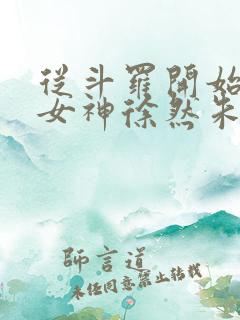 從斗羅開始
女神徐然朱
師言道
未任同意禁止轉載